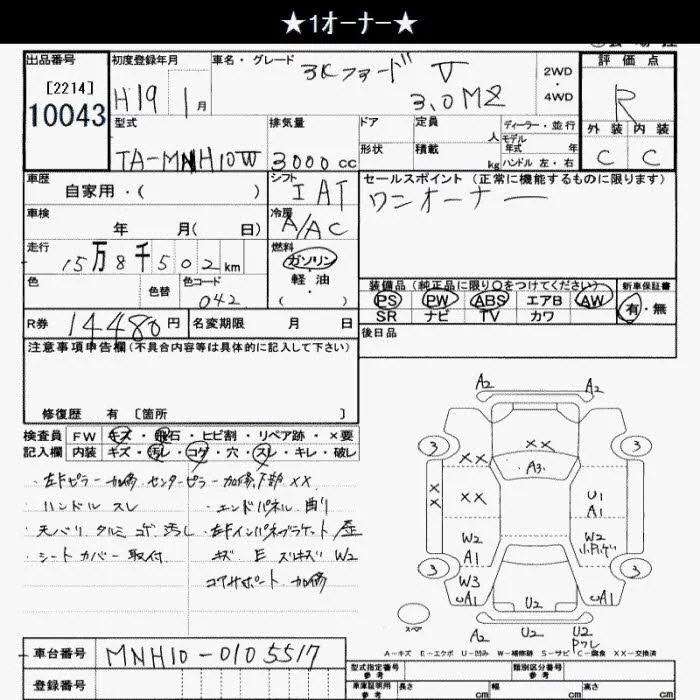 ★1ｵｰﾅｰ★
出品番号
[2214]
10043
初度登録年月
H19 1月
車名・グレード
3Kファード V
3.0MZ
2WD
・
4WD
評価点
R
外装 内装
C C
型式
TA-MNH10W
排気量
3000cc
ドア
定員
人
形状
積載
kg
ディーラー・並行
モデル
年式 年
ハンドル 左・右
車歴
自家用・( )
シフト
I AT
セールスポイント (正常に機能するものに限ります)
ワンオーナー
車検
年 月( 日)
冷房
A/AC
走行
15万8千502km
燃料
ガソリン
・
軽油
・
( )
色
色替
色コード
042
装備品 (純正品に限り○をつけてください)
PS PW ABS エアB AW
SR ナビ TV カワ
新車保証書
有・無
R券 14,480円
名変期限 月 日
後日品
注意事項申告欄(不具合内容等は具体的に記入して下さい)
修復歴 有 [箇所 ]
検査員
記入欄
FW キズ・飛石・ヒビ割・リペア跡・×要
内装 キズ・汚レ・コゲ・穴・スレ・キレ・破レ
・左Fピラー 加修 センターピラー 加修 下部 XX
・ハンドル スレ
・エンドパネル 曲り
・天バリ タルミ コゲ 汚し
・左Fインパネブラケット 歪
・シートカバー 取付
キズ E ズリキズ W2
コアサポート 加修
A2 A2
3 3
XX
A3
XX
XX
XX
U1
A1
W2
A1
W2
3 3
W3
UA1
UA1
U2
スペア
A2 U2 U2
A－キズ E－エクボ U－凹み W－補修跡 S－サビ C－腐食 XX－交換済
車台番号
MNH10-0105517
登録番号
型式指定番号
参考
類別区分番号
参考
車庫証明用
参考
長さ cm
幅 cm
高さ cm